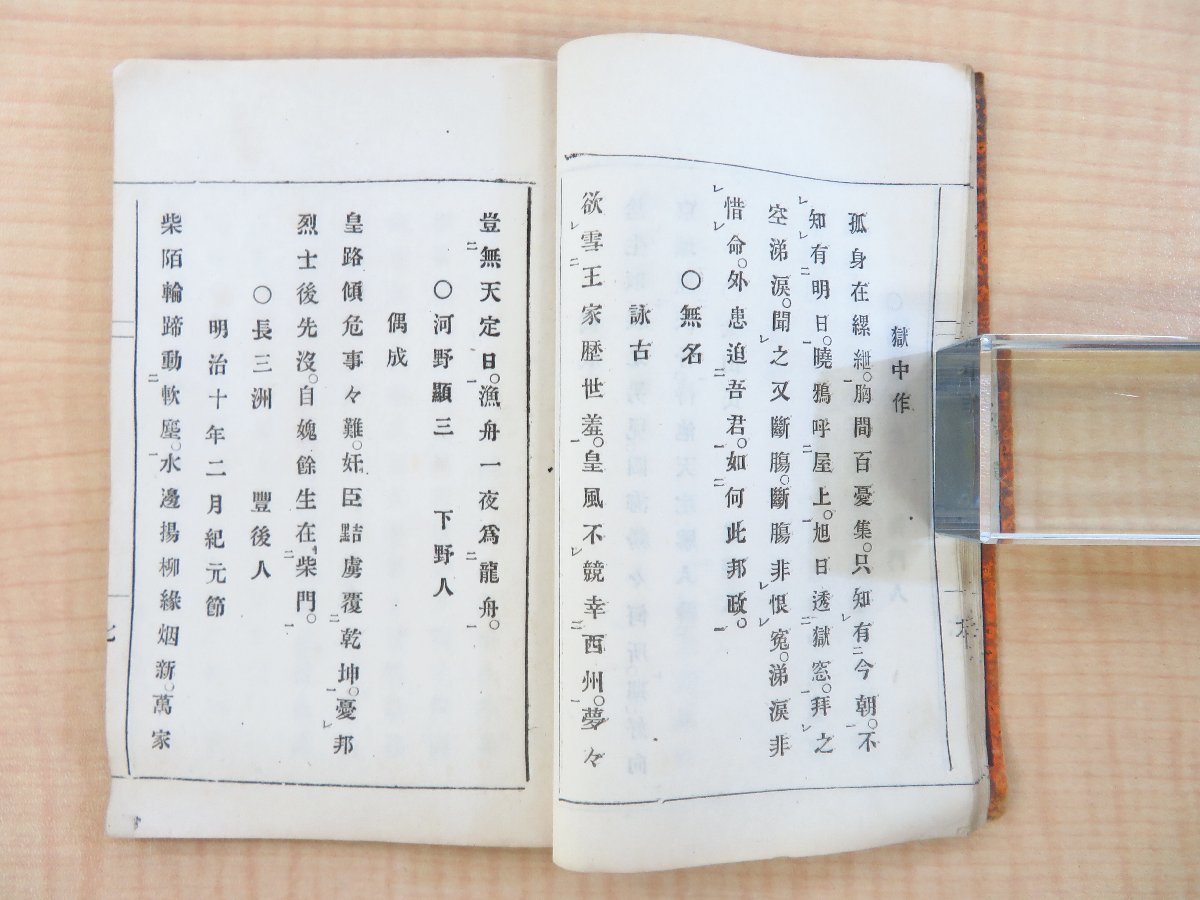 獄中作
孤身在縲紲。胸間百憂集。只知有今朝。不
知有明日。曉鴉呼屋上。旭日透獄窓。拜之
空涕淚。聞之又斷腸。斷腸非恨寃。涕淚非
惜命。外患迫吾君。如何此邦政。
〇無名
詠古
欲雪王家歷世羞。皇風不競幸西州。夢々
豈無天定日。漁舟一夜爲龍舟。
〇河野顯三 下野人
偶成
皇路傾危事々難。奸臣黠虜覆乾坤。憂邦
烈士後先沒。自媿餘生在柴門。
〇長三洲 豐後人
明治十年二月紀元節
柴陌輪蹄動軟塵。水邊揚柳緣烟新。萬家